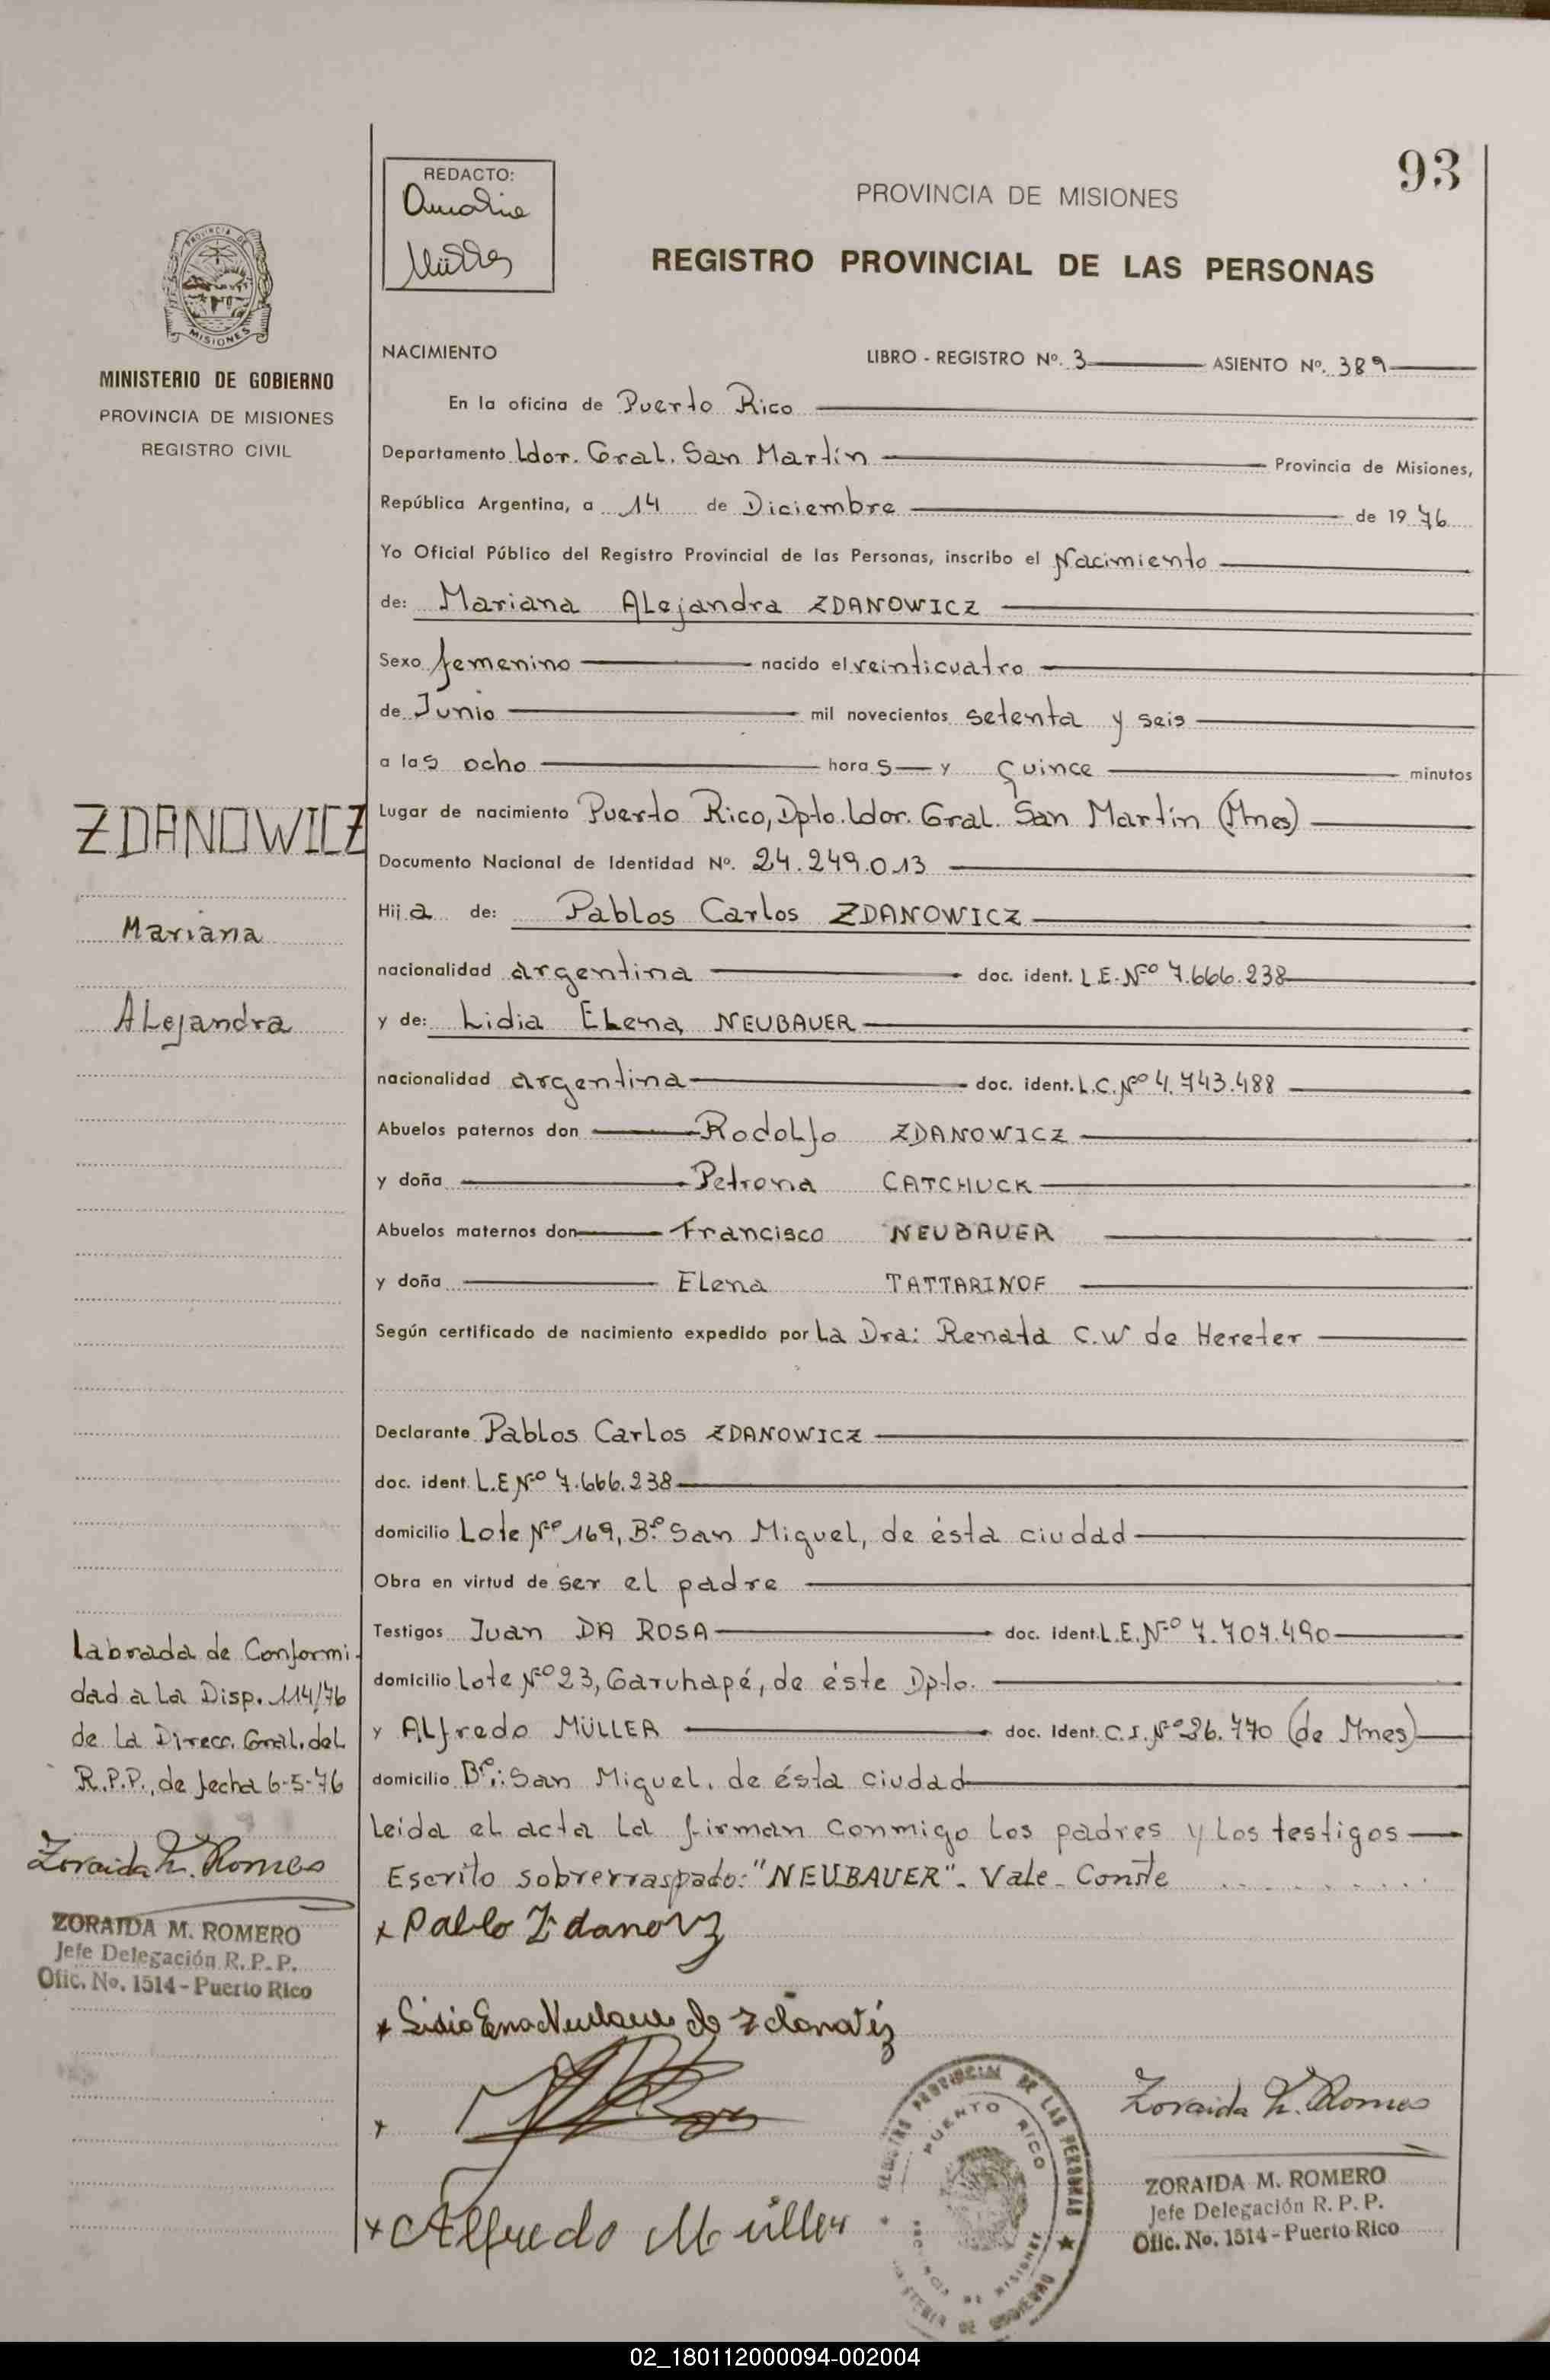 93
REDACTO:
Amalia
Müller
PROVINCIA DE MISIONES
REGISTRO PROVINCIAL DE LAS PERSONAS
PROVINCIA DE
MISIONES
MINISTERIO DE GOBIERNO
PROVINCIA DE MISIONES
REGISTRO CIVIL
NACIMIENTO LIBRO - REGISTRO Nº. 3 ASIENTO Nº. 389
En la oficina de Puerto Rico
Departamento Ldor. Gral. San Martín Provincia de Misiones,
República Argentina, a 14 de Diciembre de 1976
Yo Oficial Público del Registro Provincial de las Personas, inscribo el Nacimiento
de: Mariana Alejandra ZDANOWICZ
Sexo femenino nacido el veinticuatro
de Junio mil novecientos setenta y seis
a las ocho horas y quince minutos
Lugar de nacimiento Puerto Rico, Dpto. Ldor. Gral. San Martín (Mnes)
Documento Nacional de Identidad Nº. 24.249.013
Hija de: Pablos Carlos ZDANOWICZ
nacionalidad argentina doc. ident. L.E. Nº 7.666.238
y de: Lidia Elena NEUBAUER
nacionalidad argentina doc. ident. L.C. Nº 4.743.488
Abuelos paternos don Rodolfo ZDANOWICZ
y doña Petrona CATCHUCK
Abuelos maternos don Francisco NEUBAUER
y doña Elena TATTARINOF
Según certificado de nacimiento expedido por La Dra: Renata C.W de Hereter
Declarante Pablos Carlos ZDANOWICZ
doc. ident. L.E Nº 7.666.238
domicilio Lote Nº 169, Bº San Miguel, de ésta ciudad
Obra en virtud de ser el padre
Testigos Juan DA ROSA doc. ident. L.E. Nº 7.707.490
domicilio Lote Nº 23, Garuhapé, de éste Dpto.
y Alfredo MÜLLER doc. Ident. C.I. Nº 26.770 (de Mnes)
domicilio Bº: San Miguel, de ésta ciudad
Leida el acta la firman conmigo los padres y los testigos
Escrito sobrerraspado: "NEUBAUER". Vale. Conste
ZDANOWICZ
Mariana
Alejandra
Labrada de Conformi-
dad a la Disp. 114/76
de la Direcc. Gral. del
R.P.P. de fecha 6-5-76
Zoraida M. Romero
ZORAIDA M. ROMERO
Jefe Delegación R. P. P.
Ofic. No. 1514 - Puerto Rico
x Pablo Zdanovz
x Lidia Ena Neubauer de Zdanoviz
x
x Alfredo Müller
REGISTRO PROVINCIAL DE LAS PERSONAS
PUERTO RICO
PROVINCIA DE MISIONES
MINISTERIO DE GOBIERNO
Zoraida M. Romero
ZORAIDA M. ROMERO
Jefe Delegación R. P. P.
Ofic. No. 1514 - Puerto Rico
02_180112000094-002004